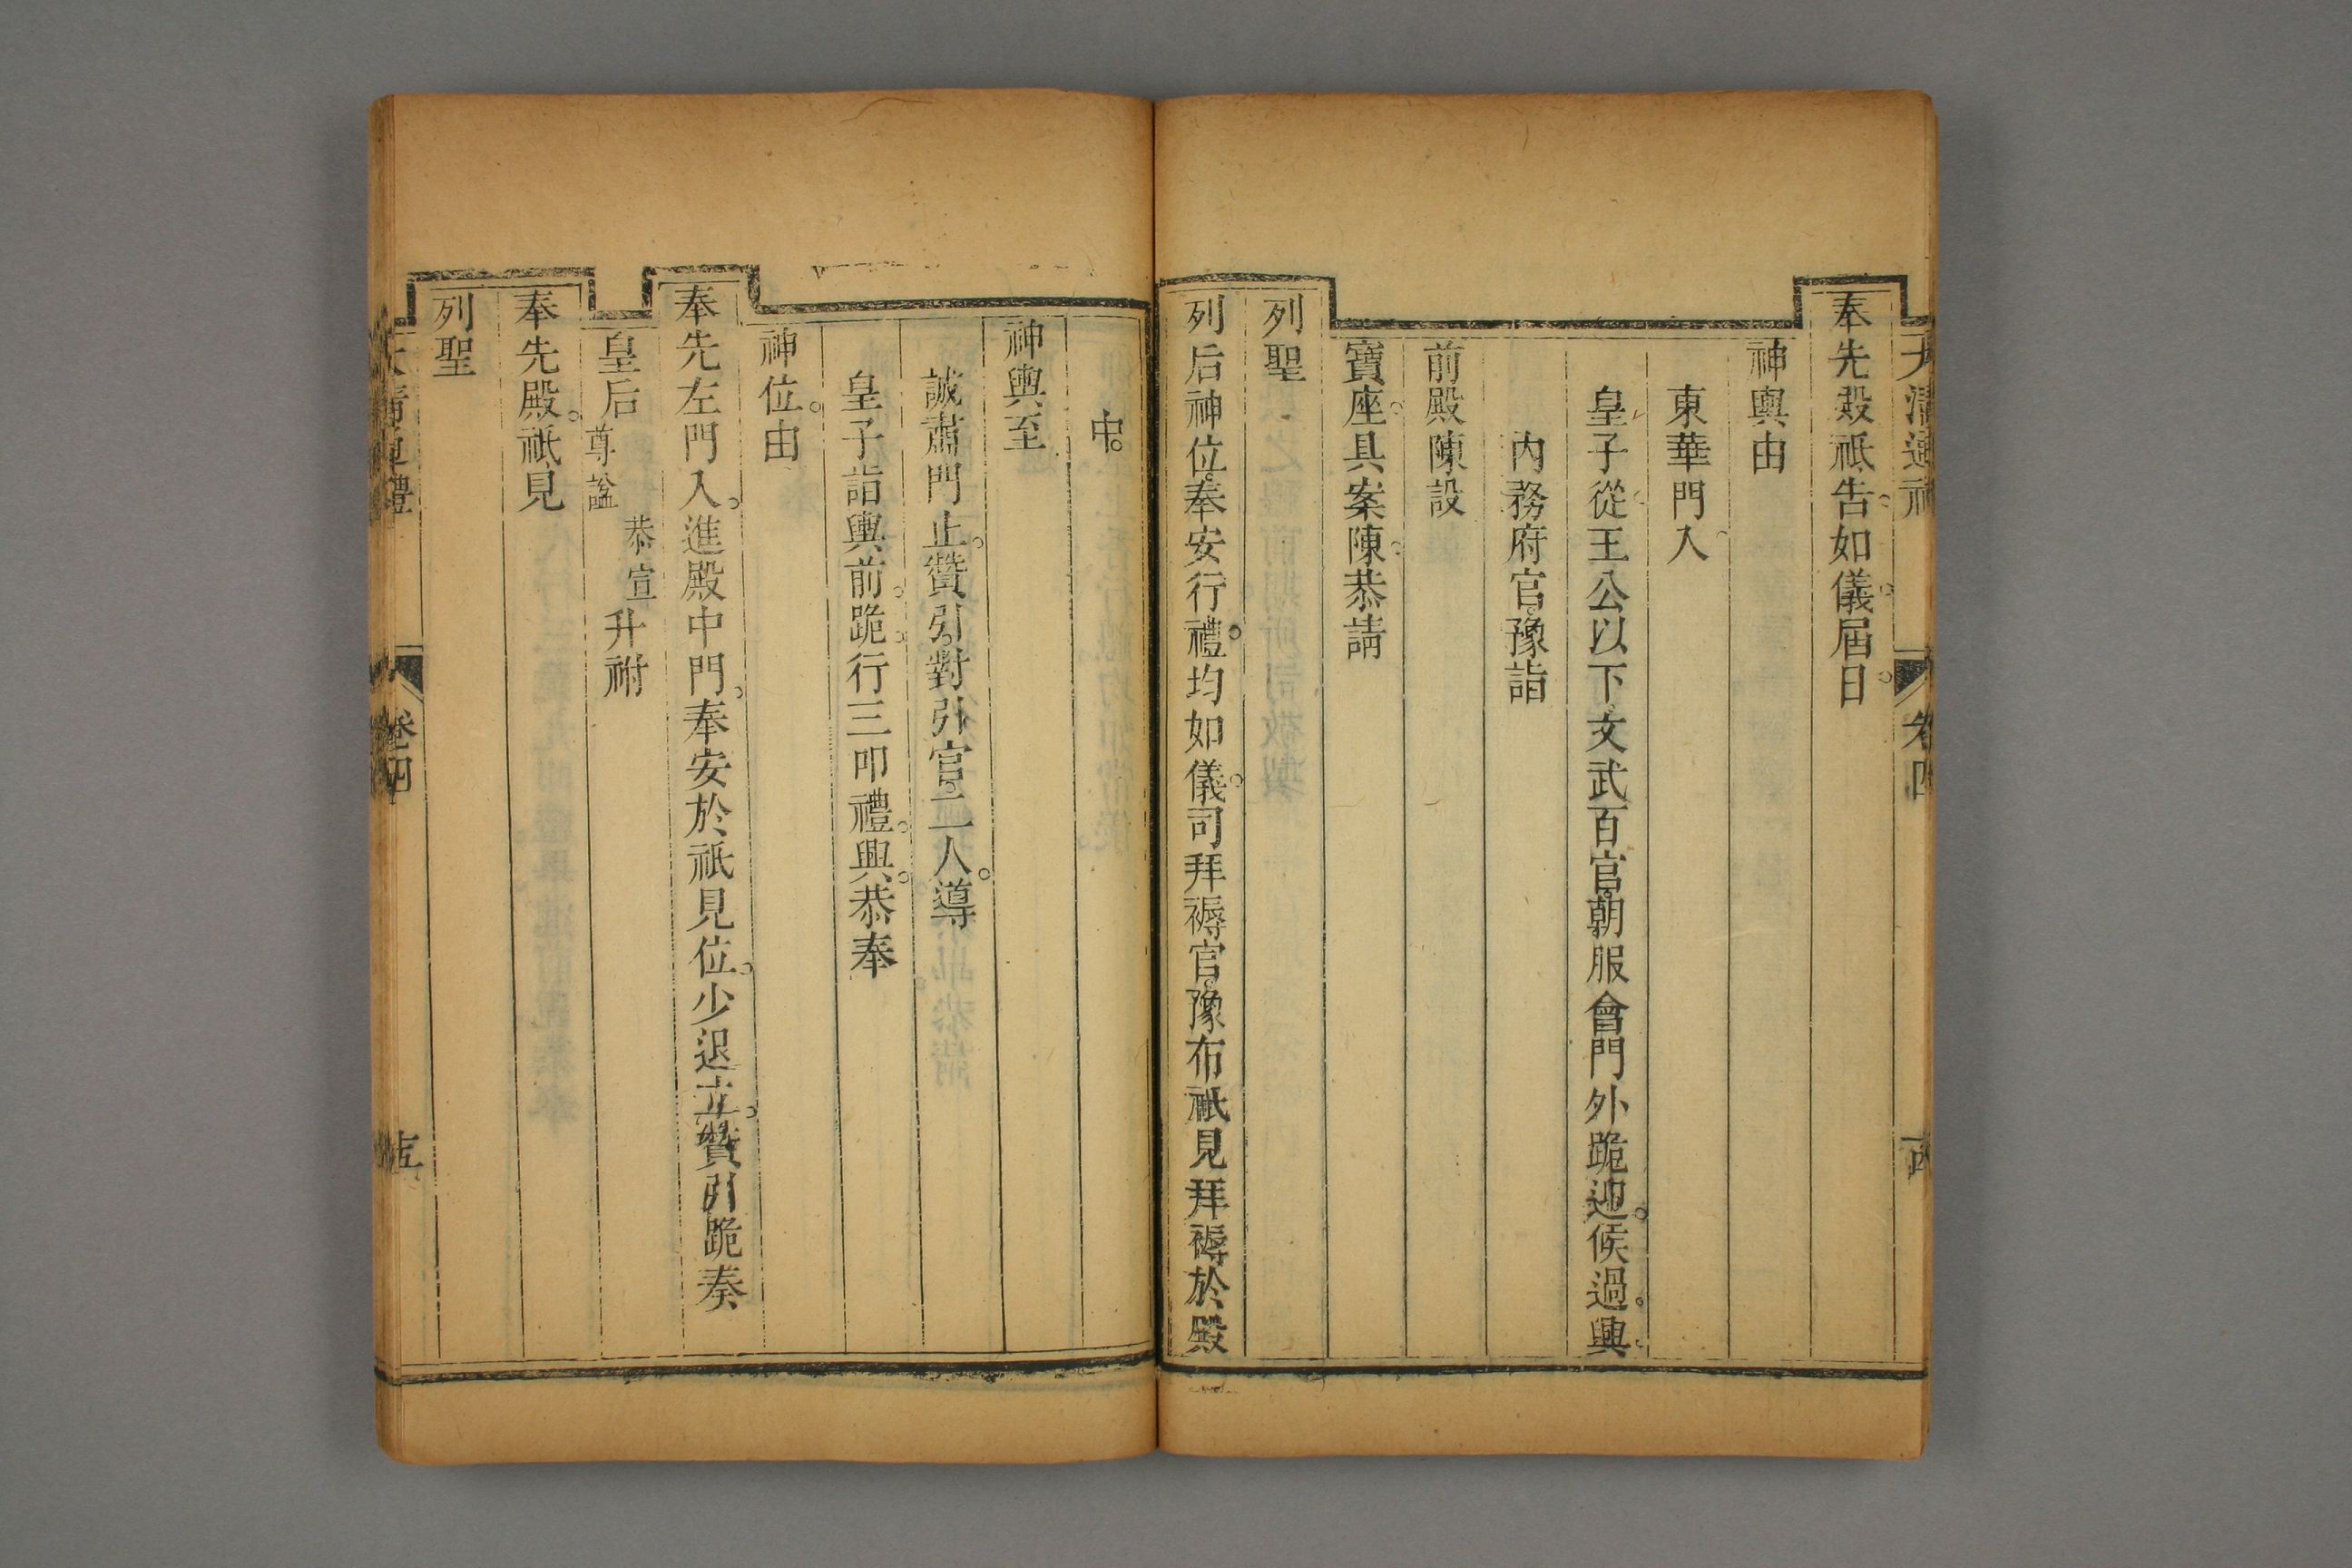 大清通禮 卷四
奉先殿祇告。如儀。屆日。
神輿由
東華門入。
皇子從。王公以下。文武百官。朝服會門外跪迎。候過。興。
內務府官。豫詣
前殿陳設
寶座。具案陳。恭請
列聖
列后神位。奉安行禮。均如儀。司拜褥官。豫布祇見拜褥於殿
中。
神輿至
誠肅門止。贊引。對引官二人。導
皇子詣輿前。跪。行三叩禮。興。恭奉
神位。由
奉先左門入。進殿中門。奉安於祇見位。少退立。贊引跪奏
皇后尊諡恭宣升祔
奉先殿。祇見
列聖
大清通禮 卷四